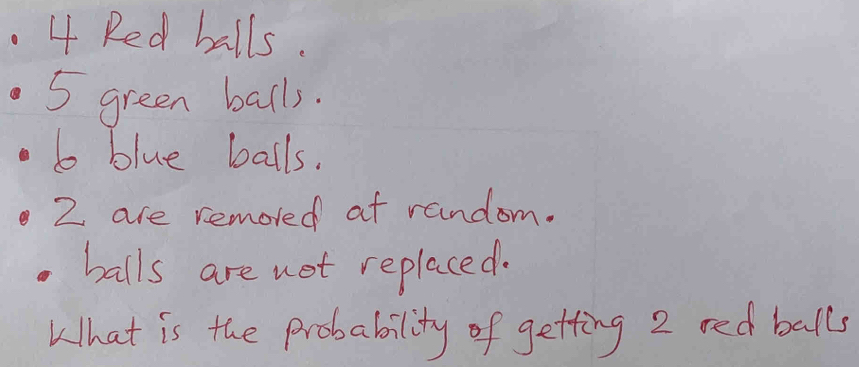 • 4 Red balls.
• 5 green balls.
• 6 blue balls.
• 2 are removed at random.
• balls are not replaced.
What is the probability of getting 2 red balls